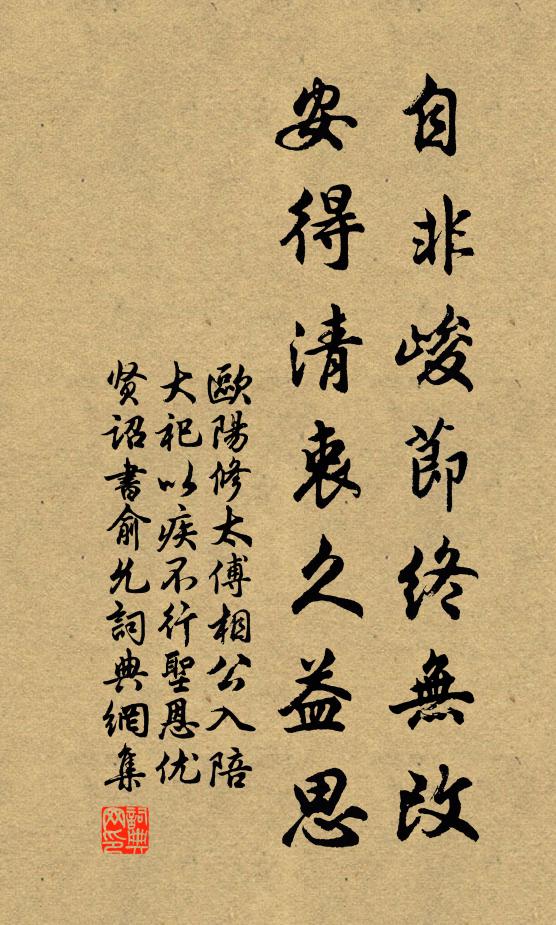 自非峻節終無改
安得清衷久益思
歐陽修太傅相公入陪
大祀以疾不行聖恩优
贤詔書俞允詞典網集
詞典网印